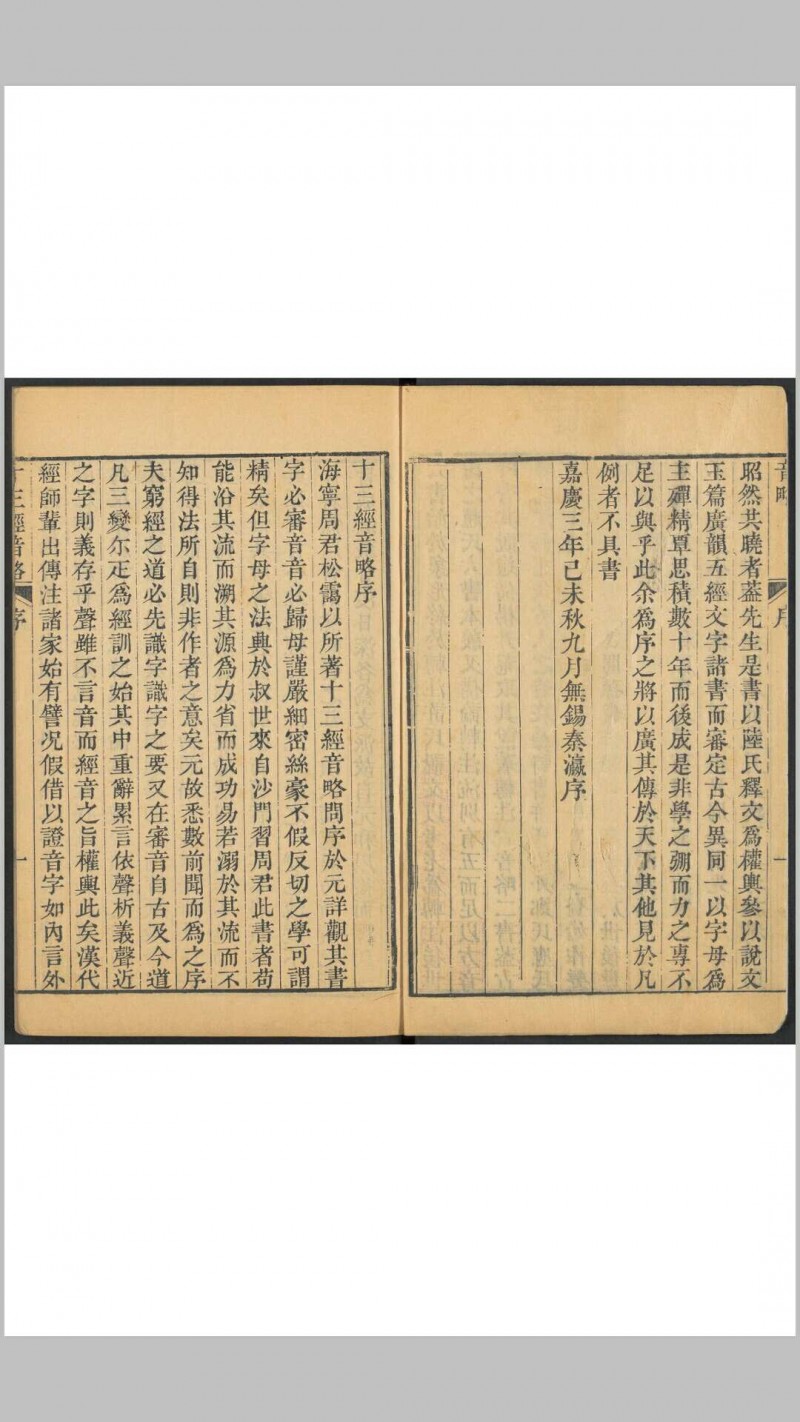 音略
序
一
昭然共曉者葢先生是書以陸氏釋文爲權輿參以說文
玉篇廣韻五經文字諸書而審定古今異同一以字母爲
主殫精覃思積數十年而後成是非學之弸而力之專不
足以與乎此余爲序之將以廣其傳於天下其他見於凡
例者不具書
嘉慶三年己未秋九月無錫秦瀛序
十三經音略序
海寧周君松靄以所著十三經音略問序於元詳觀其書
字必審音音必歸母謹嚴細密絲豪不假反切之學可謂
精矣但字母之法興於叔世來自沙門習周君此書者苟
能沿其流而溯其源爲力省而成功易若溺於其流而不
知得法所自則非作者之意矣元故悉數前聞而爲之序
夫窮經之道必先識字識字之要又在審音自古及今道
凡三變尒疋爲經訓之始其中重辭累言依聲析義聲近
之字則義存乎聲雖不言音而經音之旨權輿此矣漢代
經師輩出傳注諸家始有譬况假借以證音字如內言外
十三經音略
序
一